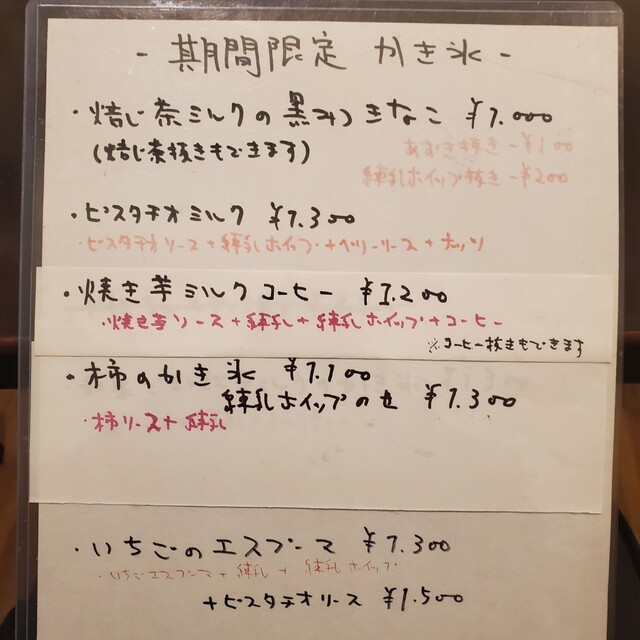 - 期間限定 かき氷 -
・焙じ茶ミルクの黒みつきなこ ¥1.000
(焙じ茶抜きもできます)
あずき抜き -¥100
練乳ホイップ抜き -¥200
・ピスタチオミルク ¥1.300
・ピスタチオソース+練乳ホイップ+ベリーソース+ナッツ
・焼き芋ミルクコーヒー ¥1.200
・焼き芋ソース+練乳+練乳ホイップ+コーヒー
※コーヒー抜きもできます
・柿のかき氷 ¥1.100
練乳ホイップのせ ¥1.300
・柿ソース+練乳
・いちごのエスプーマ ¥1.300
・いちごエスプーマ+練乳+練乳ホイップ
+ピスタチオソース ¥1.500